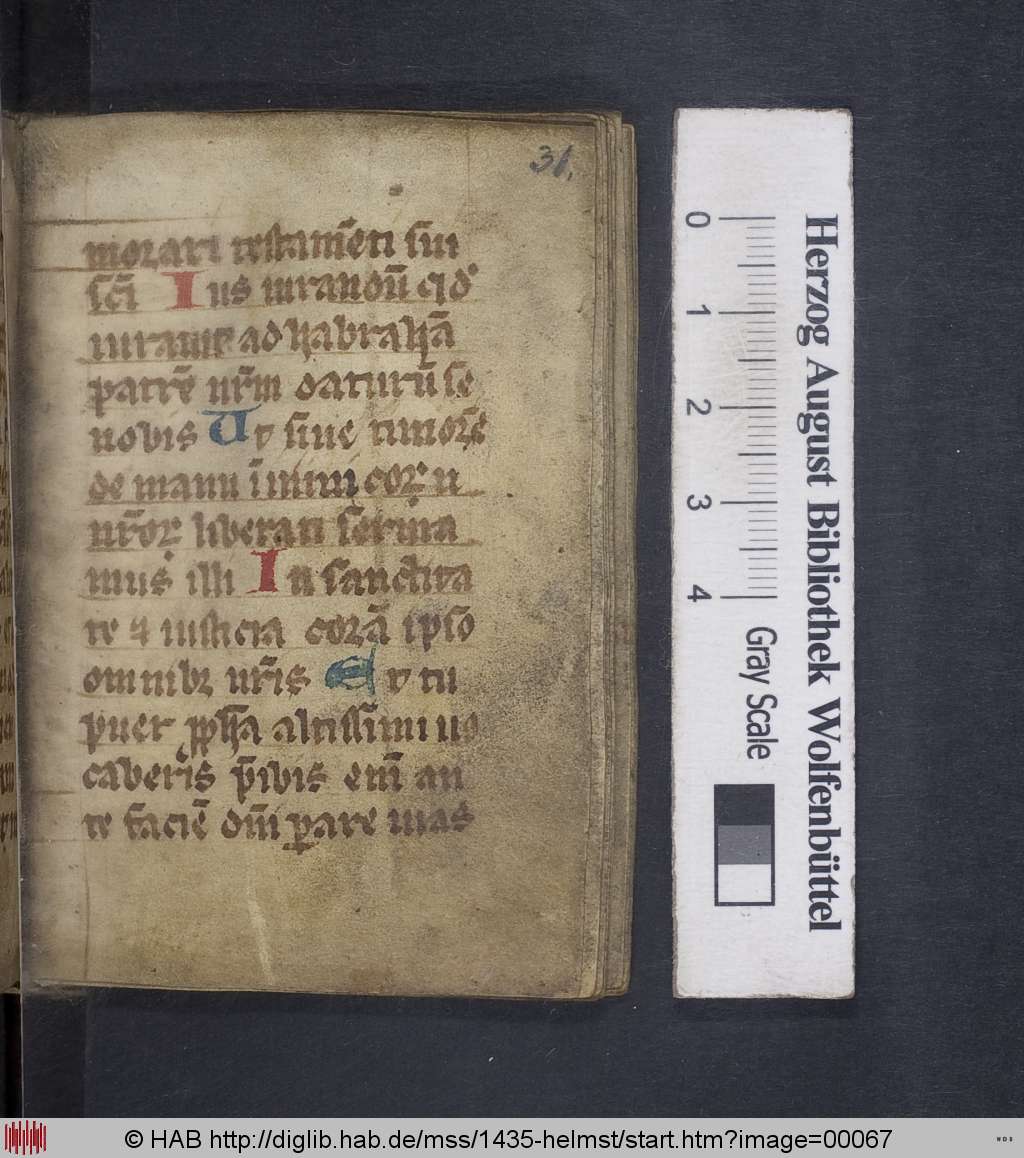 31.
morari testam̄ti sui
sc̄i Ius iurandū qd
iurauit ad habrahā
patrē nr̄m daturū se
nobis Ut sine timore
de manu īmicorū
nr̄oꝝ liberati seruia
mus illi In sanctita
te ⁊ iusticia corā ipso
omnibꝫ nr̄is Et tu
puer ꝓpha altissimi uo
caberis p̄ibis em̄ an
te faciē dn̄i ꝑare uias
0
1
2
3
4
Gray Scale
Herzog August Bibliothek Wolfenbüttel
© HAB http://diglib.hab.de/mss/1435-helmst/start.htm?image=00067